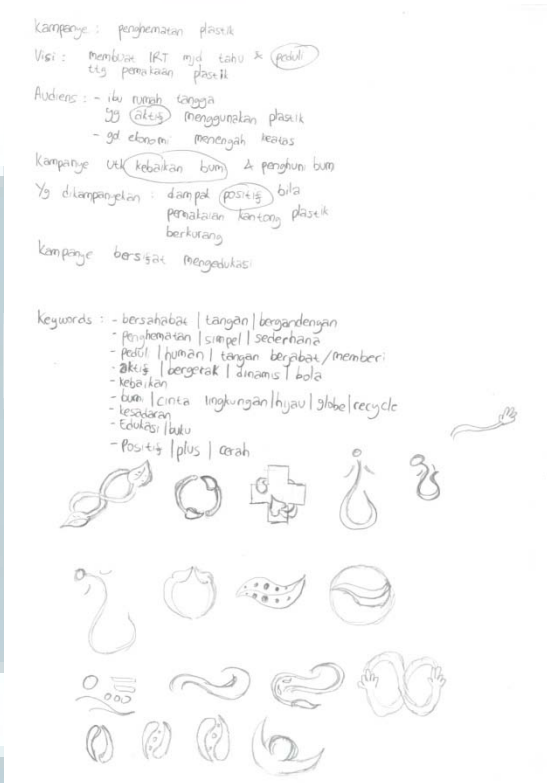 Kampanye : penghematan plastik
Visi : membuat IRT mjd tahu & peduli
ttg pemakaian plastik
Audiens : - ibu rumah tangga
yg aktif menggunakan plastik
- gd ekonomi menengah keatas
Kampanye utk kebaikan bumi & penghuni bumi
Yg dikampanyekan : dampak positif bila
pemakaian kantong plastik
berkurang
Kampanye bersifat mengedukasi
Keywords : - bersahabat | tangan | bergandengan
- penghematan | simpel | sederhana
- peduli | human | tangan berjabat / memberi
- aktif | bergerak | dinamis | bola
- kebaikan
- bumi | cinta lingkungan | hijau | globe | recycle
- kesadaran
- Edukasi | buku
- Positif | plus | cerah